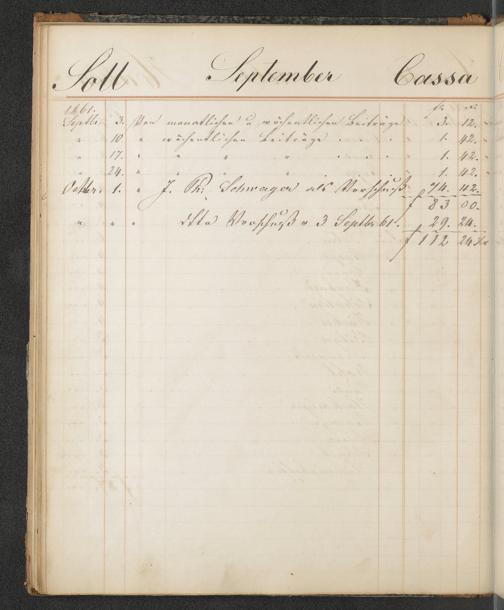 Soll September Cassa
1861. f. x.
Septbr. 3. Von monatlichen u wöchentlichen Beiträge 3. 12.
" 10 " wöchentlichen Beiträge 1. 42.
" 17. " " " 1. 42.
" 24. " " " 1. 42.
Octbr. 1. " J. Ph. Schwager als Vorschuß 74. 42.
f 83 00.
" " " dtto Vorschuß v 3 Septbr 61. 29. 24.
f 112 24